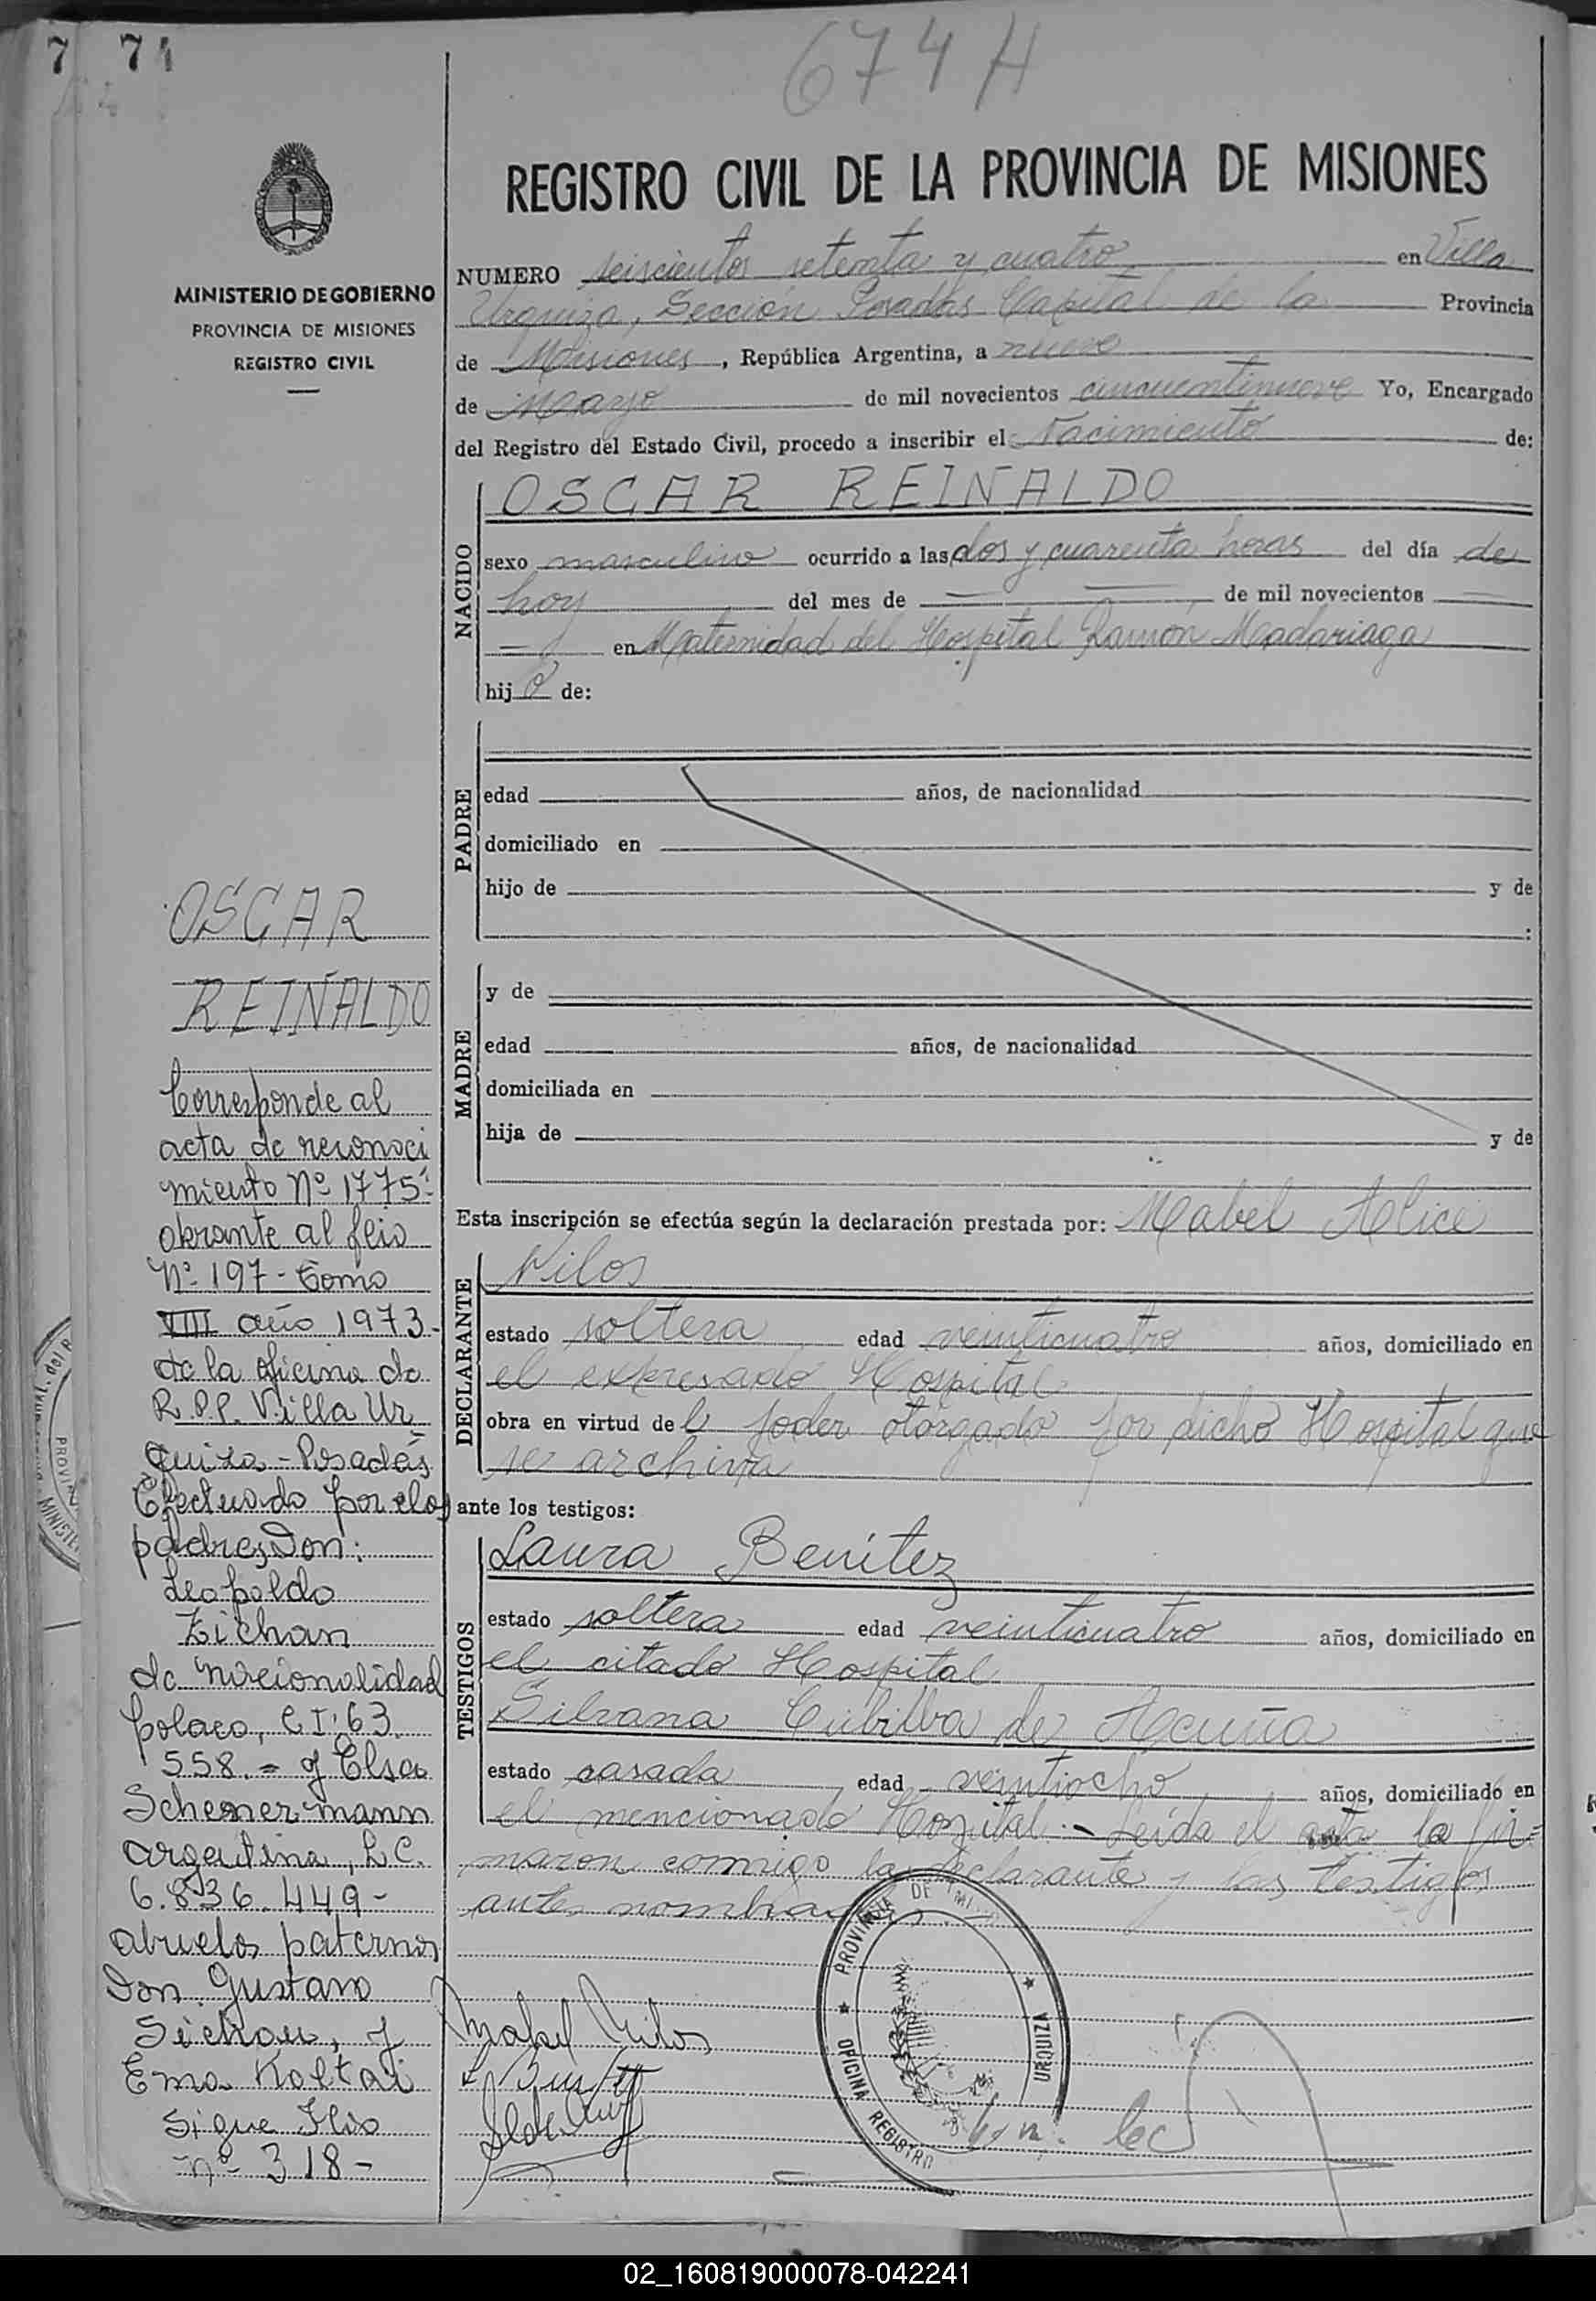 7 71
674 H
MINISTERIO DE GOBIERNO
PROVINCIA DE MISIONES
REGISTRO CIVIL
OSCAR
REINALDO
Corresponde al
acta de reconoci
miento Nº 1775
obrante al flio
Nº 197 - Tomo
VIII año 1973-
de la oficina de
R.P.P. Villa Ur
quiza - Posadas
Efectuado por elos
padres Don:
Leopoldo
Zichan
de nacionalidad
polaco, C I: 63
558.= y Elsa
Schenermann
argentina, L.C.
6.836.449-
abuelos paternos
Don. Gustavo
Sichau, y
Ema Koltai
Sigue Flio
nº 318-
REGISTRO CIVIL DE LA PROVINCIA DE MISIONES
NUMERO seiscientos setenta y cuatro en Villa
Urquiza, Sección Posadas Capital de la Provincia
de Misiones, República Argentina, a nueve
de Mayo de mil novecientos cincuentinueve Yo, Encargado
del Registro del Estado Civil, procedo a inscribir el Nacimiento de:
NACIDO
OSCAR REINALDO
sexo masculino ocurrido a las dos y cuarenta horas del día de
hoy del mes de — — de mil novecientos —
— en Maternidad del Hospital Ramón Madariaga
hijo de:
PADRE
edad años, de nacionalidad
domiciliado en
hijo de y de
:
MADRE
y de
edad años, de nacionalidad
domiciliada en
hija de y de
Esta inscripción se efectúa según la declaración prestada por: Mabel Alice
DECLARANTE
Nilos
estado soltera edad veinticuatro años, domiciliado en
el expresado Hospital
obra en virtud del poder otorgado por dicho Hospital que
se archiva
ante los testigos:
TESTIGOS
Laura Benítez
estado soltera edad veinticuatro años, domiciliado en
el citado Hospital
Silvana Cubilba de Acuña
estado casada edad veintiocho años, domiciliado en
el mencionado Hospital.- Leída el acta la fir=
maron conmigo la declarante y las testigos
antes nombradas.
Mabel Nilos
PROVINCIA DE MI
OFICINA REGISTRO
URQUIZA
02_160819000078-042241